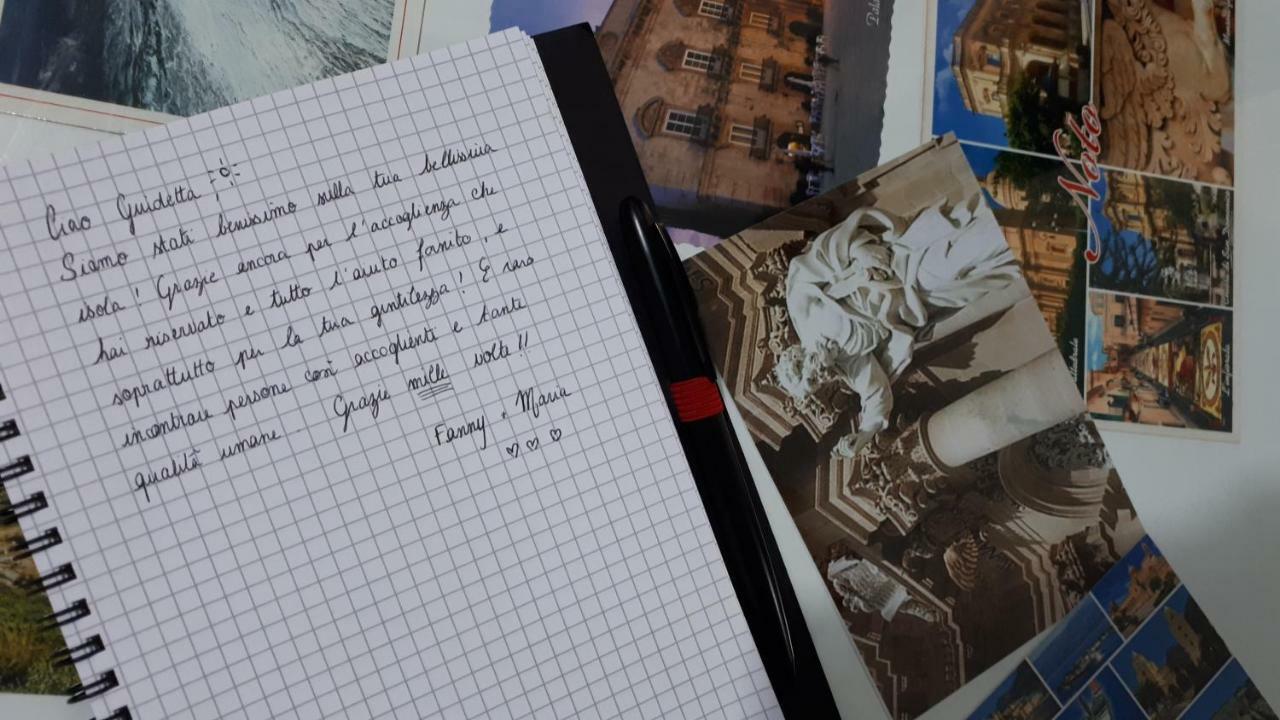 Ciao Guidetta
Siamo stati benissimo sulla tua bellissima
isola! Grazie ancora per l'accoglienza che
hai riservato e tutto l'aiuto fornito, e
soprattutto per la tua gentilezza! È raro
incontrare persone così accoglienti e tante
qualità umane. Grazie mille volte!!
Fanny + Maria
♡♡♡
Noto